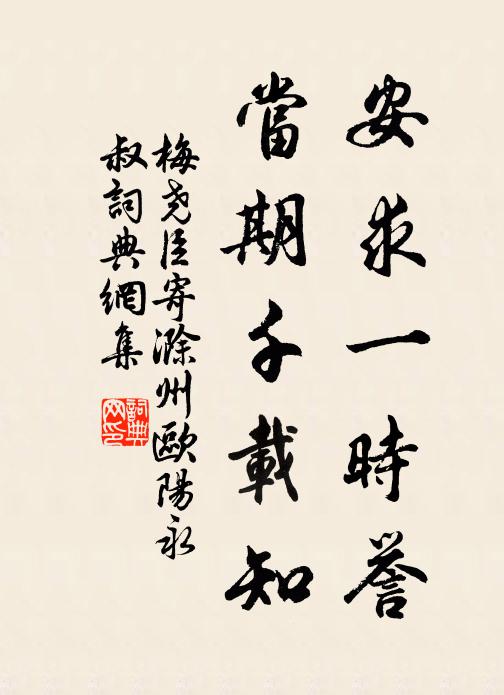 安求一時譽
當期千載知
梅堯臣寄滁州歐陽永
叔詞典網集
詞典
网印